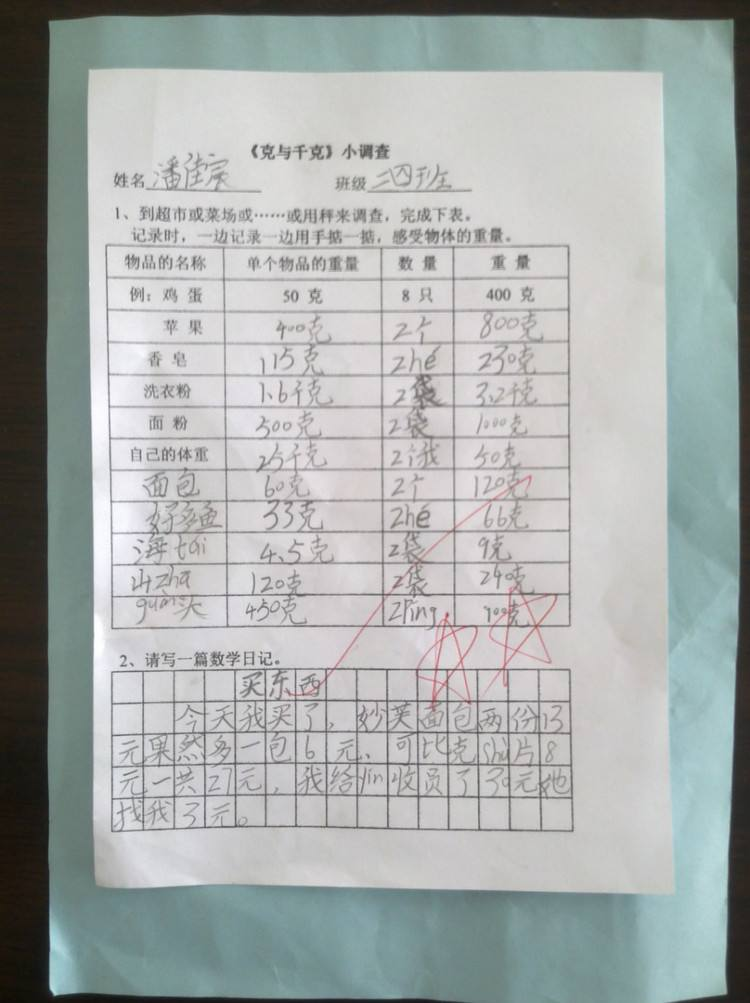 《克与千克》小调查
姓名 潘佳宸 班级 二四班
1、到超市或菜场或……或用秤来调查，完成下表。
记录时，一边记录一边用手掂一掂，感受物体的重量。
物品的名称 单个物品的重量 数 量 重 量
例：鸡 蛋 50 克 8 只 400 克
苹 果 400克 2个 800克
香 皂 115克 2hé 230克
洗衣粉 1.6千克 2袋 3.2千克
面 粉 500克 2袋 1000克
自己的体重 25千克 2个我 50克
面包 60克 2个 120克
好多鱼 33克 2hé 66克
海tai 4.5克 2袋 9克
山zha 120克 2袋 240克
guan头 450克 2Ping 900克
2、请写一篇数学日记。
买东西
今天我买了，妙芙面包两份13
元果然多一包6元、可比克shu片8
元一共27元，我给yin收员了30元她
找我3元。